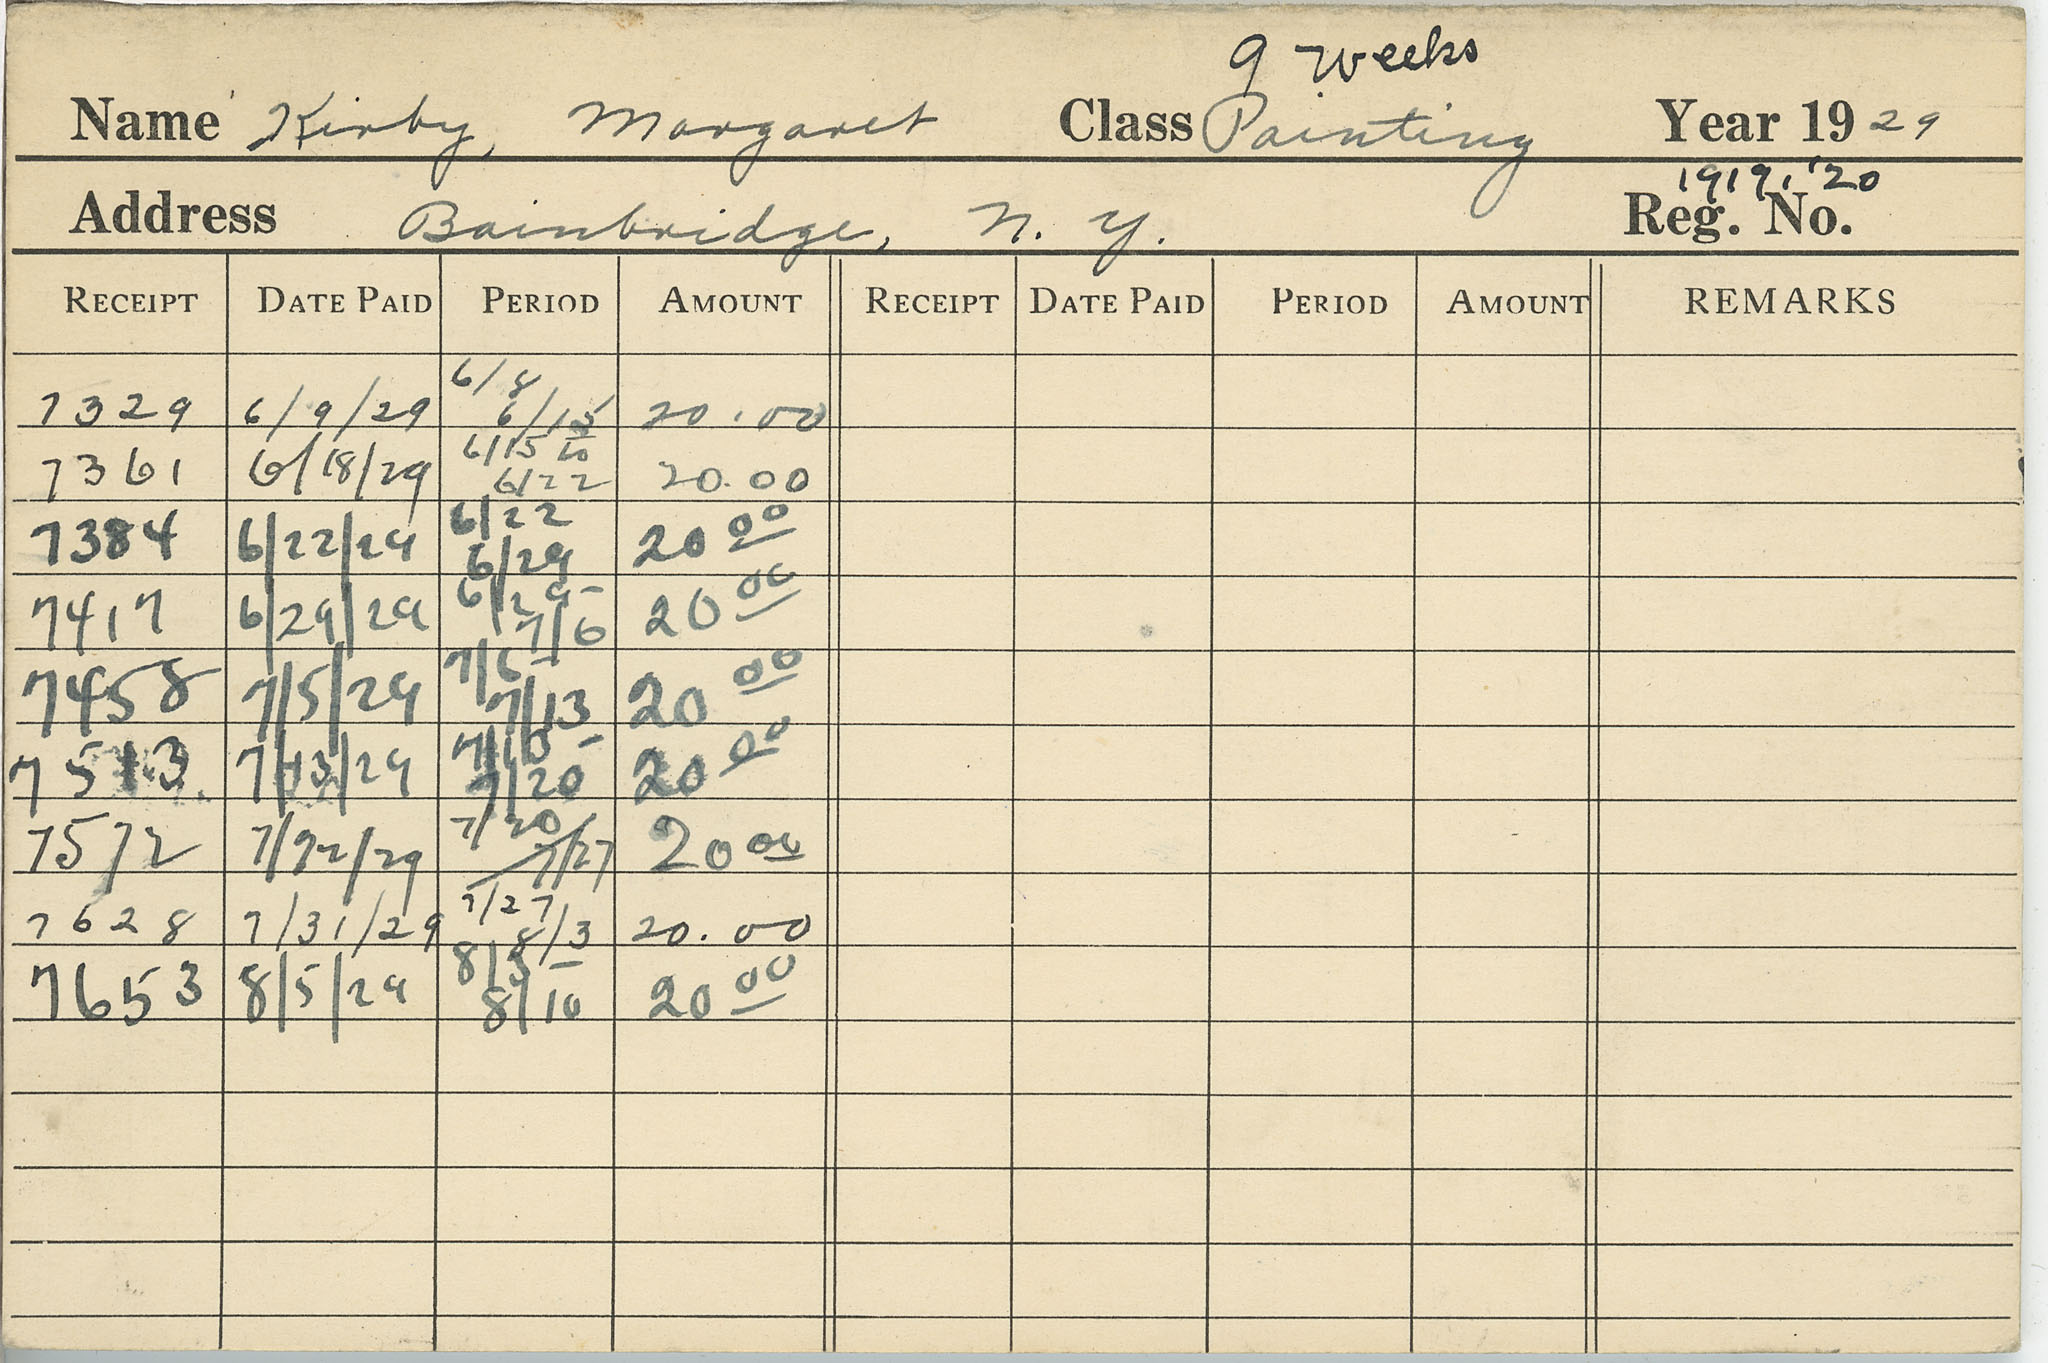 9 Weeks
Name Kirby, Margaret Class Painting Year 1929
1919, '20
Address Bainbridge, N. Y. Reg. No.
RECEIPT DATE PAID PERIOD AMOUNT RECEIPT DATE PAID PERIOD AMOUNT REMARKS
6/8
7329 6/9/29 6/15 20.00
6/15 to
7361 6/18/29 6/22 20.00
6/22
7384 6/22/29 6/29 20 00
6/29-
7417 6/29/29 7/6 20 00
7/6-
7458 7/5/29 7/13 20 00
7513 7/13/29 7/20 20 00
7/20
7572 7/22/29 7/27 20 00
7/27
7628 7/31/29 8/3 20.00
8/3-
7653 8/5/29 8/10 20 00